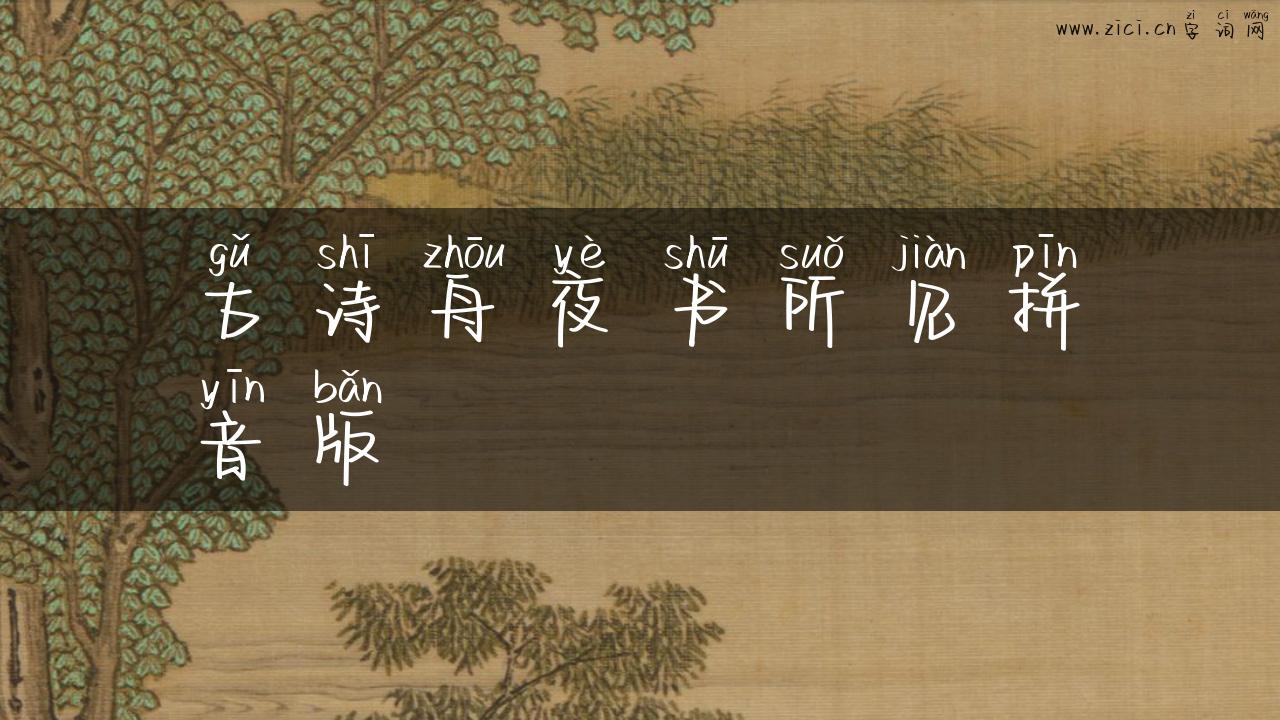 zì cí wǎng
www.zici.cn 字 词 网
gǔ shī zhōu yè shū suǒ jiàn pīn
古 诗 舟 夜 书 所 见 拼
yīn bǎn
音 版